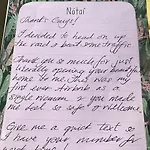 Nótaí
Thanks Guys!
I decided to head on up
the road & beat some traffic.
Thank you so much for just
literally opening your beautiful
home to me. This was my
first ever Airbnb as a
single woman & you made
me feel so safe & welcome.
Give me a quick text so
I have your number for